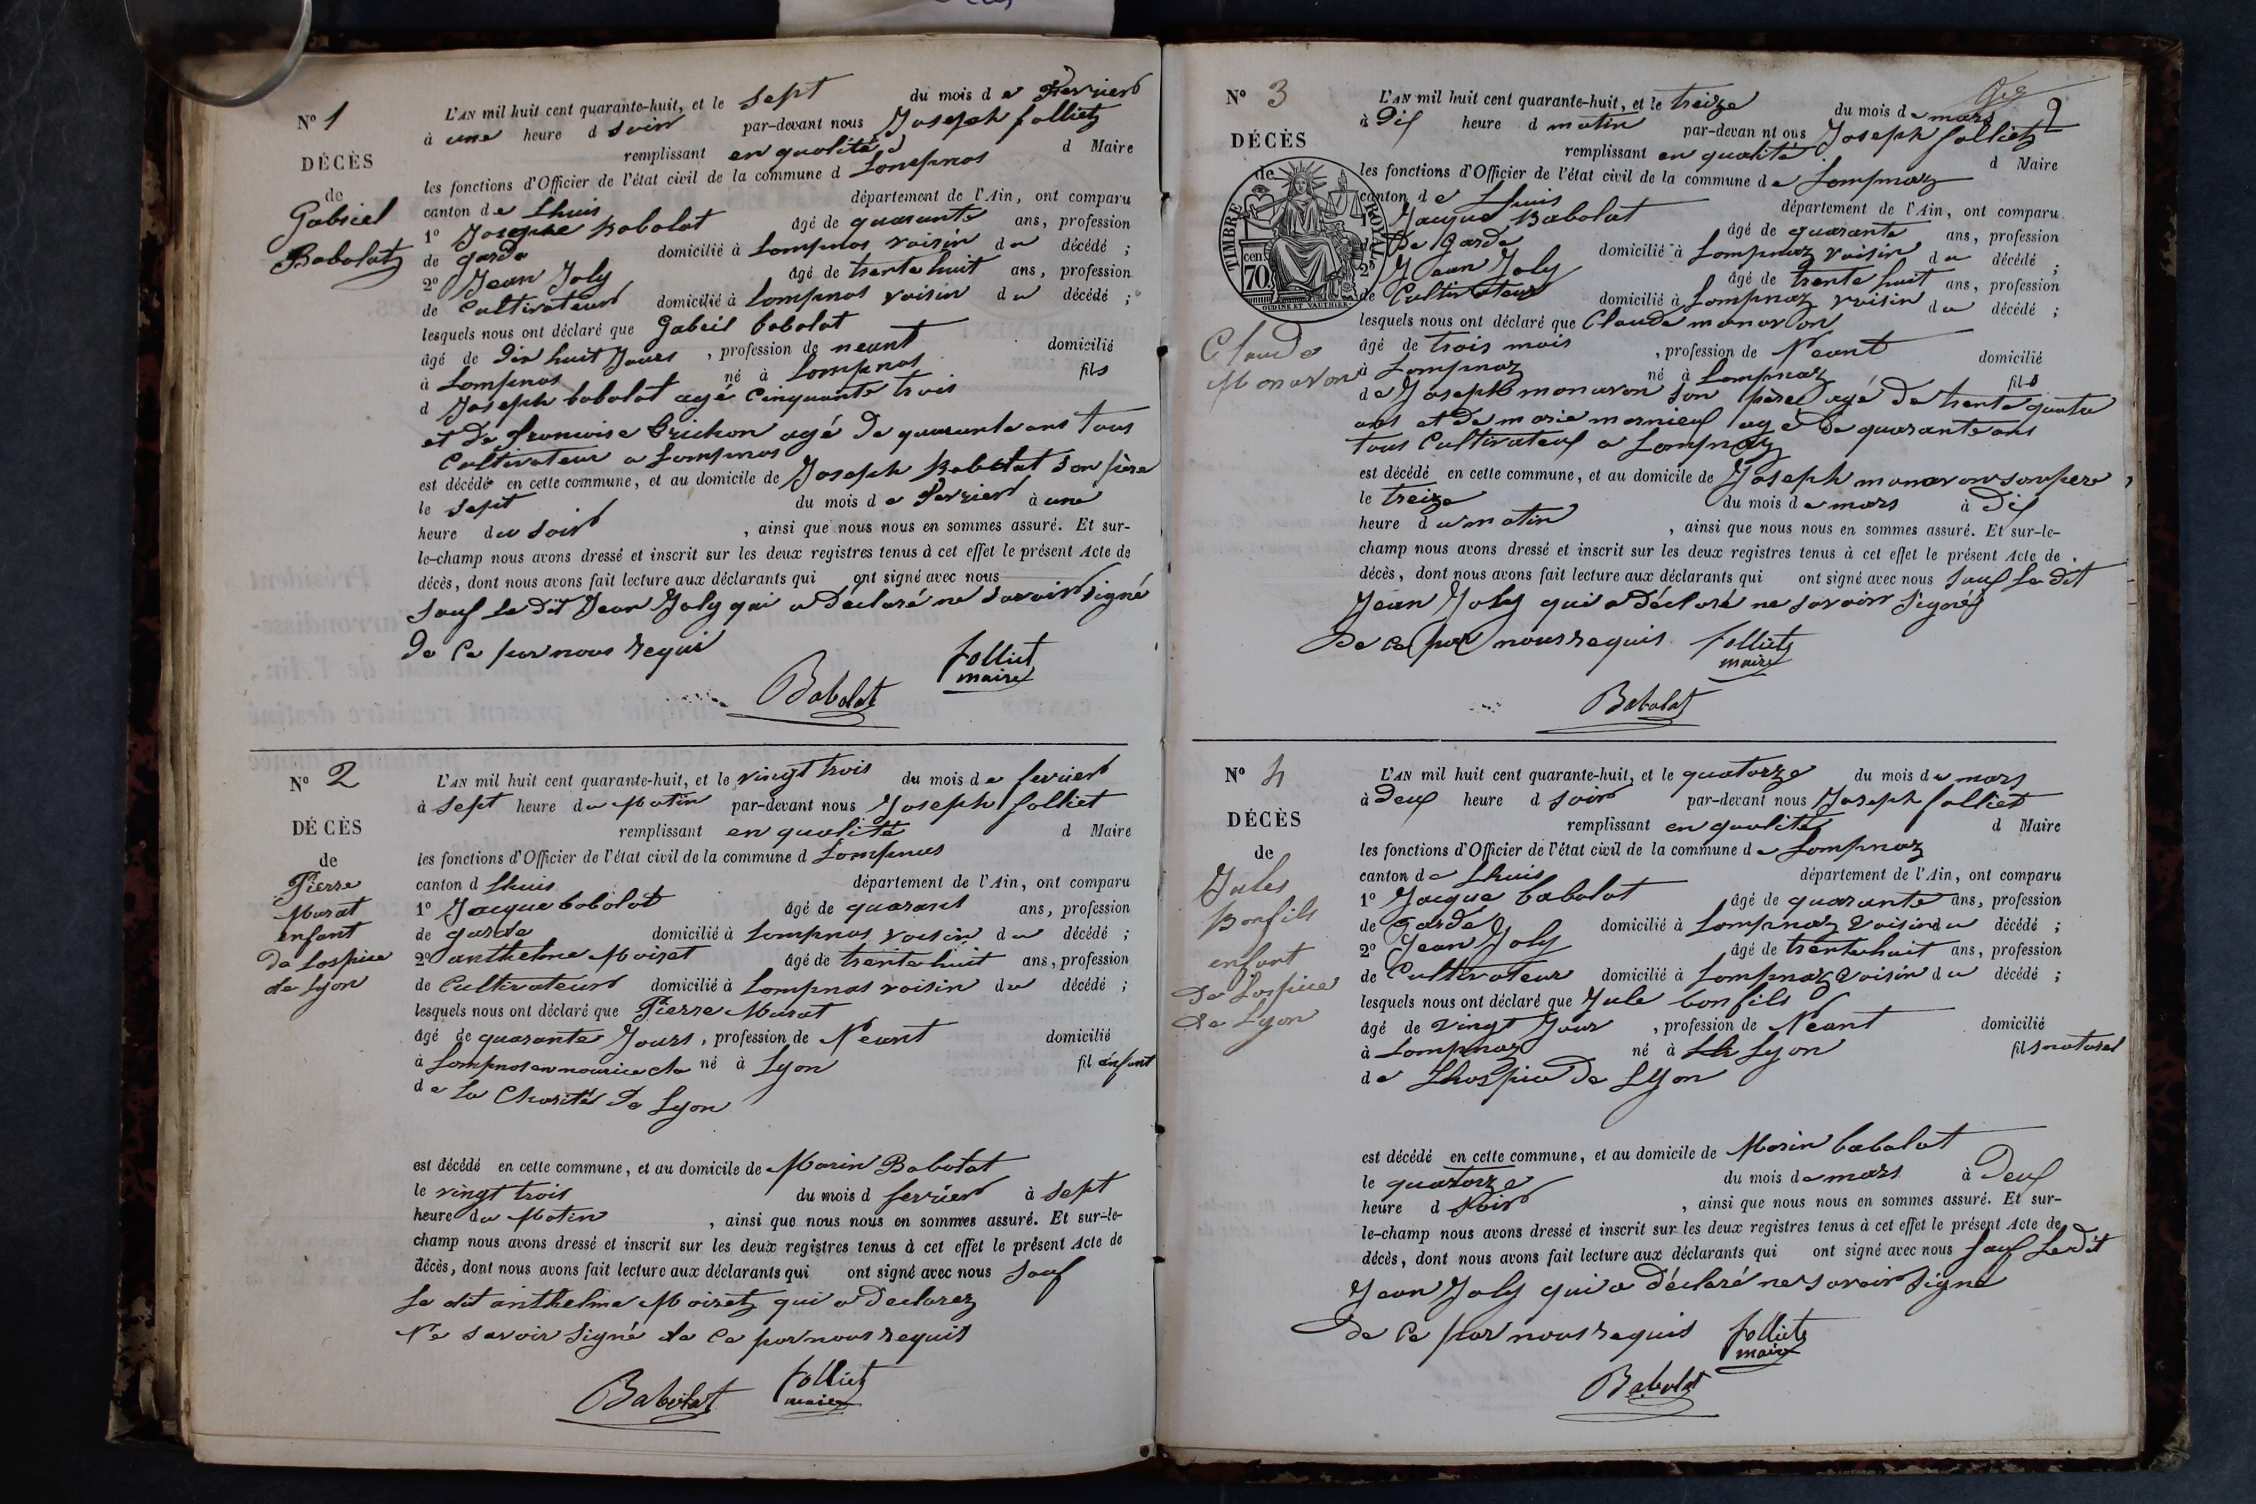 N° 1
DÉCÈS
de
Gabriel
Babolat
L'AN mil huit cent quarante-huit, et le sept du mois de Fevrier
à une heure d soir par-devant nous Joseph folliet
remplissant en qualité d Maire
les fonctions d'Officier de l'état civil de la commune d Lompnas
canton de Lhuis département de l'Ain, ont comparu
1° Jacque Babolat âgé de quarante ans, profession
de garde domicilié à Lompnas voisin du décédé ;
2° Jean Joly âgé de trente huit ans, profession
de Cultivateur domicilié à Lompnas voisin du décédé ;
lesquels nous ont déclaré que Gabriel babolat
âgé de Dix huit Jours, profession de neant domicilié
à Lompnas né à Lompnas fils
d Joseph babolat agé Cinquante trois
et de francoise Crichon agé de quarante ans tous
Cultivateur a Lompnas
est décédé en cette commune, et au domicile de Joseph Babolat son père
le sept du mois de Fevrier à une
heure du soir, ainsi que nous nous en sommes assuré. Et sur-
le-champ nous avons dressé et inscrit sur les deux registres tenus à cet effet le présent Acte de
décès, dont nous avons fait lecture aux déclarants qui ont signé avec nous
sauf le dit Jean Joly qui a déclaré ne savoir signé
de Ce par nous requi
folliet
maire
Babolat
N° 2
DÉCÈS
de
Pierre
Murat
enfant
de Lospice
de Lyon
L'AN mil huit cent quarante-huit, et le vingt trois du mois de fevrier
à sept heure du Matin par-devant nous Joseph folliet
remplissant en qualité d Maire
les fonctions d'Officier de l'état civil de la commune d Lompnas
canton d Lhuis département de l'Ain, ont comparu
1° Jacque babolat âgé de quarant ans, profession
de garde domicilié à Lompnas voisin du décédé ;
2° anthelme Moiret âgé de trente huit ans, profession
de Cultivateur domicilié à Lompnas voisin du décédé ;
lesquels nous ont déclaré que Pierre Murat
âgé de quarante Jours, profession de Néant domicilié
à Lompnas en nourice né à Lyon fil enfant
de La Charité de Lyon
est décédé en cette commune, et au domicile de Marin Babolat
le vingt trois du mois d fevrier à sept
heure du Matin, ainsi que nous nous en sommes assuré. Et sur-le-
champ nous avons dressé et inscrit sur les deux registres tenus à cet effet le présent Acte de
décès, dont nous avons fait lecture aux déclarants qui ont signé avec nous Sauf
Le dit anthelme Moiret qui a Declarez
Ne savoir signé de Ce par nous requis
Babolat
folliet
maire
2
N° 3
DÉCÈS
de
TIMBRE ROYAL
70 cen
OUDINÉ ET VAUTHIER
Claude
Monavon
L'AN mil huit cent quarante-huit, et le treize du mois de mars
à Dix heure d matin par-devant nous Joseph folliet
remplissant en qualité d Maire
les fonctions d'Officier de l'état civil de la commune de Lompnaz
canton de Lhuis département de l'Ain, ont comparu
Jacque Babolat âgé de quarante ans, profession
de Garde domicilié à Lompnaz voisin du décédé ;
2° Jean Joly âgé de trente huit ans, profession
de Cultivateur domicilié à Lompnaz voisin du décédé ;
lesquels nous ont déclaré que Claude monavon
âgé de trois mois, profession de Néant domicilié
à Lompnaz né à Lompnaz fils
de Joseph monavon son père agé de trente quatre
ans et de marie mornieux agé de quarante ans
tous Cultivateur a Lompnaz
est décédé en cette commune, et au domicile de Joseph monavon son pere,
le treize du mois de mars à Dix
heure du matin, ainsi que nous nous en sommes assuré. Et sur-le-
champ nous avons dressé et inscrit sur les deux registres tenus à cet effet le présent Acte de
décès, dont nous avons fait lecture aux déclarants qui ont signé avec nous Sauf Le dit
Jean Joly qui a déclaré ne savoir signér
De ce par nous requis
folliet
maire
Babolat
N° 4
DÉCÈS
de
Jules
Bonfils
enfant
de Lospice
de Lyon
L'AN mil huit cent quarante-huit, et le quatorze du mois de mars
à Deux heure d soir par-devant nous Joseph folliet
remplissant en qualité d Maire
les fonctions d'Officier de l'état civil de la commune de Lompnaz
canton de Lhuis département de l'Ain, ont comparu
1° Jacque babolat âgé de quarante ans, profession
de garde domicilié à Lompnaz voisin du décédé ;
2° Jean Joly âgé de trente huit ans, profession
de Cultivateur domicilié à Lompnaz voisin du décédé ;
lesquels nous ont déclaré que Jule bonfils
âgé de vingt Jour, profession de Néant domicilié
à Lompnaz né à Lyon fils naturel
de Lhospice de Lyon
est décédé en cette commune, et au domicile de Marin babolat
le quatorze du mois de mars à Deux
heure d soir, ainsi que nous nous en sommes assuré. Et sur-
le-champ nous avons dressé et inscrit sur les deux registres tenus à cet effet le présent Acte de
décès, dont nous avons fait lecture aux déclarants qui ont signé avec nous Sauf Le dit
Jean Joly qui a déclaré ne savoir signé
De Ce par nous requis
folliet
maire
Babolat